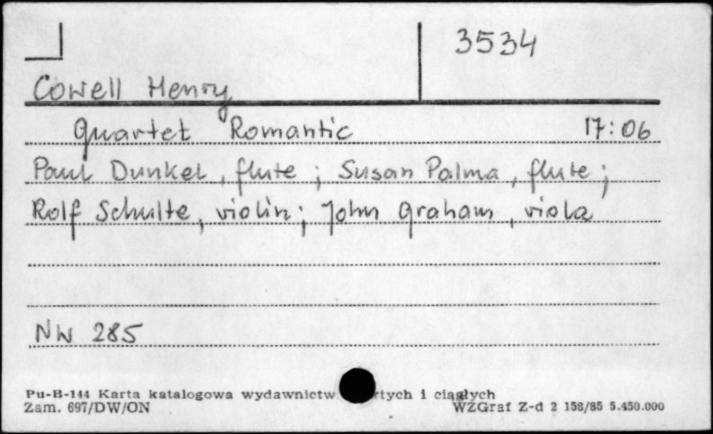 3534
Cowell Henry
Quartet Romantic 17:06
Paul Dunkel, flute; Susan Palma, flute;
Rolf Schulte, violin; John Graham, viola
NW 285
Pu-B-144 Karta katalogowa wydawnictw rtych i ciągłych
Zam. 697/DW/ON WZGraf Z-d 2 158/85 5.450.000